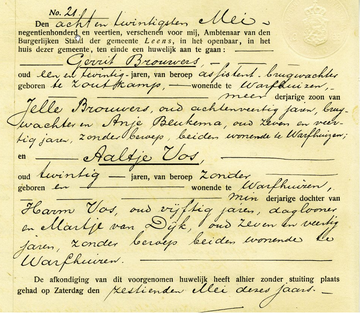 No. 20.
Den achten twintigsten Mei -
negentienhonderd en veertien, verschenen voor mij, Ambtenaar van den
Burgerlijken Stand der gemeente Leens, in het openbaar, in het
huis dezer gemeente, ten einde een huwelijk aan te gaan :
Gerrit Brouwers -
oud een en twintig - jaren, van beroep assistent-brugwachter
geboren te Zoutkamp, - wonende te Warfhuizen, -
meer derjarige zoon van
Jelle Brouwers, oud achtenveertig jaren, brug-
wachter en Anje Beukema, oud zeven en veer-
tig jaren, zonder beroep, beiden wonende te Warfhuizen;
en Aaltje Vos,
oud twintig - jaren, van beroep zonder
geboren en - wonende te Warfhuizen,
min derjarige dochter van
Harm Vos, oud vijftig jaren, daglooner
en Martje van Dijk, oud zeven en veertig
jaren, zonder beroep beiden wonende te
Warfhuizen. -
De afkondiging van dit voorgenomen huwelijk heeft alhier zonder stuiting plaats
gehad op Zaterdag den zestienden Mei dezes jaars. -